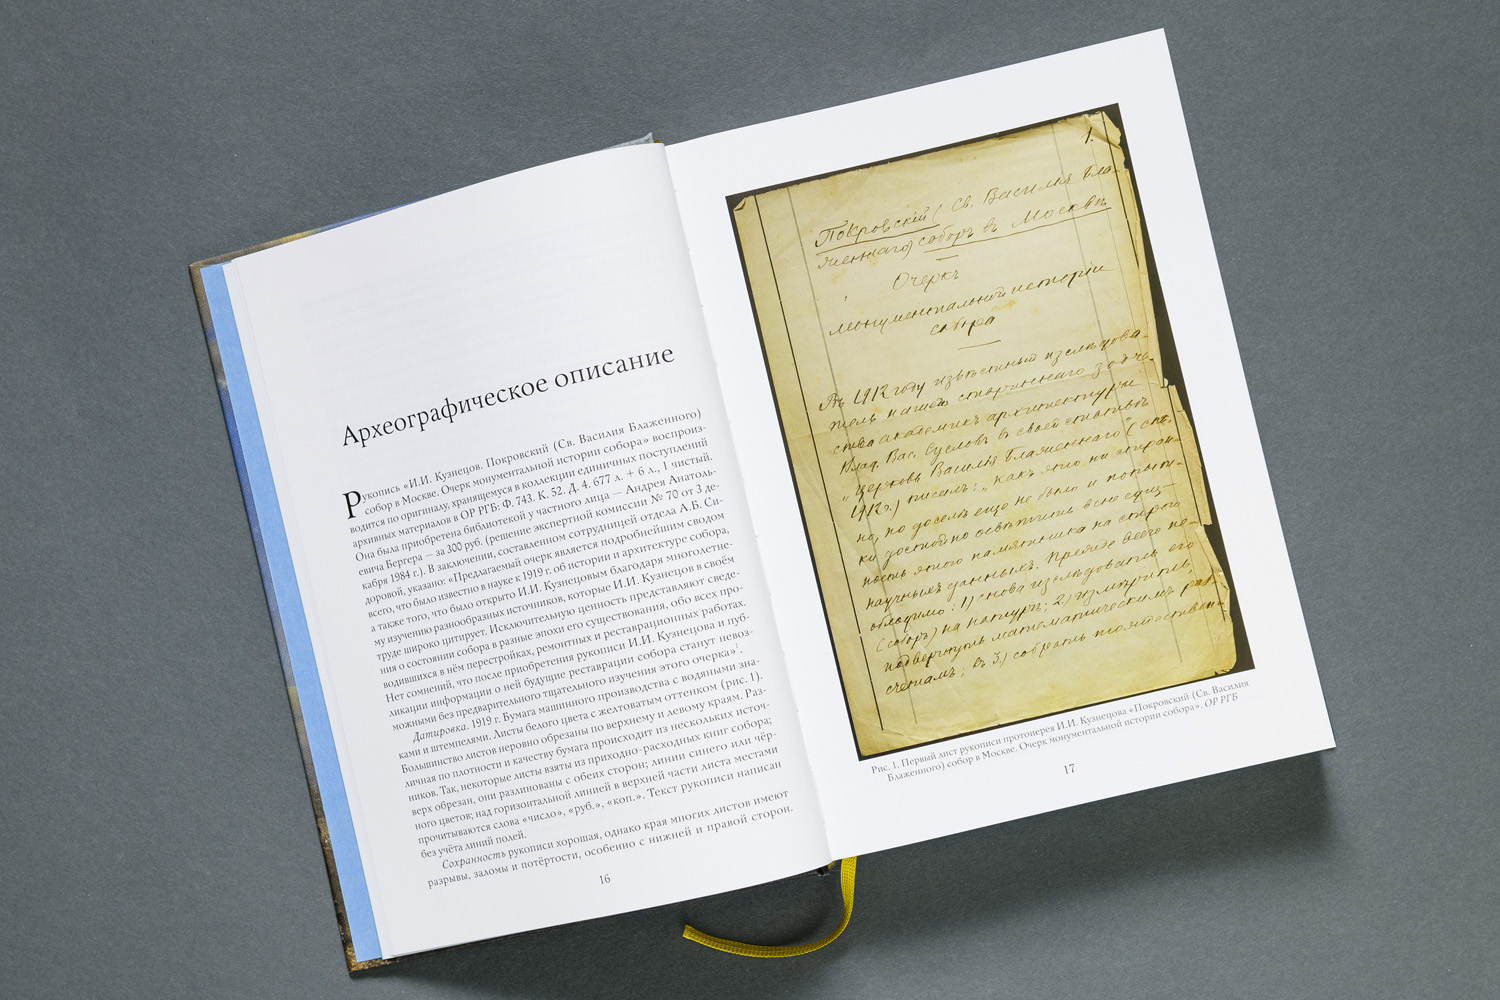 Археографическое описание
Рукопись «И.И. Кузнецов. Покровский (Св. Василия Блаженного)
собор в Москве. Очерк монументальной истории собора» воспроиз-
водится по оригиналу, хранящемуся в коллекции единичных поступлений
архивных материалов в ОР РГБ: Ф. 743. К. 52. Д. 4. 677 л. + 6 л., 1 чистый.
Она была приобретена библиотекой у частного лица — Андрея Анатоль-
евича Бергера — за 300 руб. (решение экспертной комиссии № 70 от 3 де-
кабря 1984 г.). В заключении, составленном сотрудницей отдела А.Б. Си-
доровой, указано: «Предлагаемый очерк является подробнейшим сводом
всего, что было известно в науке к 1919 г. об истории и архитектуре собора,
а также того, что было открыто И.И. Кузнецовым благодаря многолетне-
му изучению разнообразных источников, которые И.И. Кузнецов в своём
труде широко цитирует. Исключительную ценность представляют сведе-
ния о состоянии собора в разные эпохи его существования, обо всех про-
водившихся в нём перестройках, ремонтных и реставрационных работах.
Нет сомнений, что после приобретения рукописи И.И. Кузнецова и пуб-
ликации информации о ней будущие реставрации собора станут невоз-
можными без предварительного тщательного изучения этого очерка»¹.
Датировка. 1919 г. Бумага машинного производства с водяными зна-
ками и штемпелями. Листы белого цвета с желтоватым оттенком (рис. 1).
Большинство листов неровно обрезаны по верхнему и левому краям. Раз-
личная по плотности и качеству бумага происходит из нескольких источ-
ников. Так, некоторые листы взяты из приходно-расходных книг собора;
верх обрезан, они разлинованы с обеих сторон; линии синего или чёр-
ного цветов; над горизонтальной линией в верхней части листа местами
прочитываются слова «число», «руб.», «коп.». Текст рукописи написан
без учёта линий полей.
Сохранность рукописи хорошая, однако края многих листов имеют
разрывы, заломы и потёртости, особенно с нижней и правой сторон.
16
1.
Покровскій (Св. Василія Бла-
женнаго) соборъ въ Москвѣ
Очеркъ
монументальной исторіи
собора
Въ 1912 году извѣстный изслѣдова-
тель нашего стариннаго зодче-
ства академикъ архитектуры
Влад. Вас. Сусловъ въ своей статьѣ
„Церковь Василія Блаженнаго" (
1912 г.) писалъ: „какъ это ни стран-
но, но доселѣ еще не было и попыт-
ки достойно освѣтить всю сущ-
ность этого памятника на строго
научныхъ данныхъ. Прежде всего не-
обходимо: 1) снова изслѣдовать его
(соборъ) на натурѣ; 2) измѣрить,
подвергнуть математическимъ раз-
счетамъ; и 3) собрать
Рис. 1. Первый лист рукописи протоиерея И.И. Кузнецова «Покровский (Св. Василия
Блаженного) собор в Москве. Очерк монументальной истории собора». ОР РГБ
17